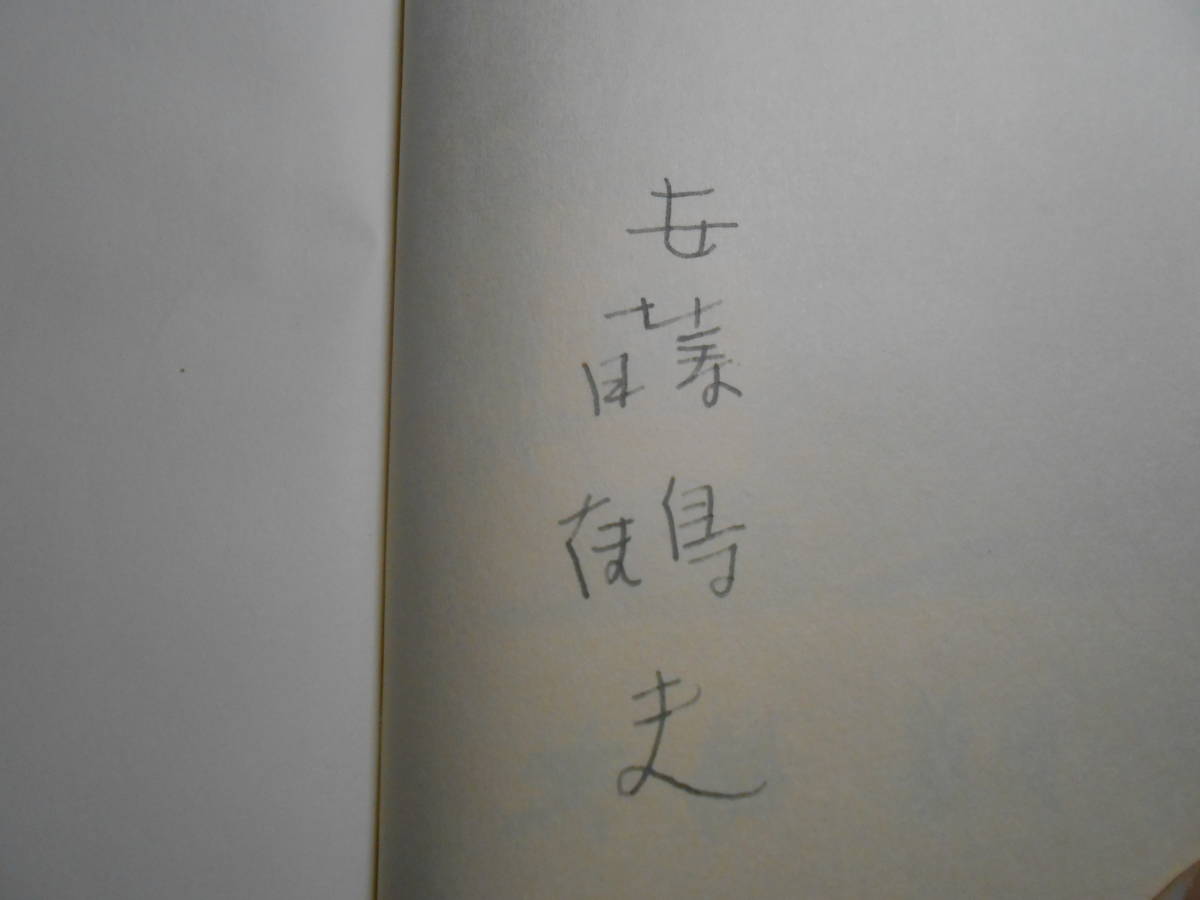 安藤鶴夫